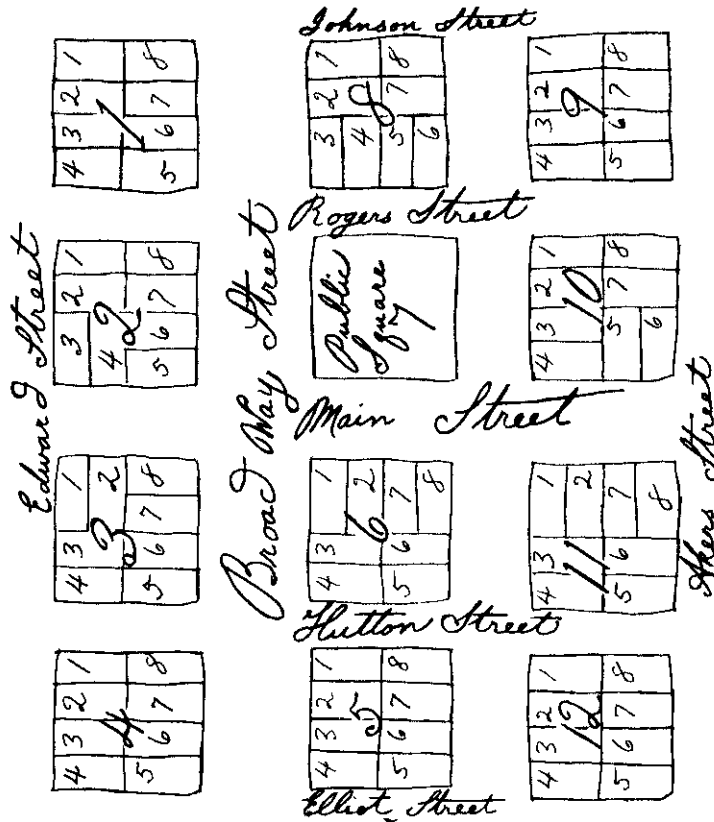 Johnson Street
1 2 3 4 5 6 7 8
1
1 2 3 4 5 6 7 8
8
1 2 3 4 5 6 7 8
9
Rogers Street
Edward Street
Broad Way Street
1 2 3 4 5 6 7 8
2
Public
Square
7
1 2 3 4 5 6 7 8
10
Main Street
1 2 3 4 5 6 7 8
3
1 2 3 4 5 6 7 8
6
1 2 3 4 5 6 7 8
11
Akers Street
Hutton Street
1 2 3 4 5 6 7 8
4
1 2 3 4 5 6 7 8
5
1 2 3 4 5 6 7 8
12
Elliot Street